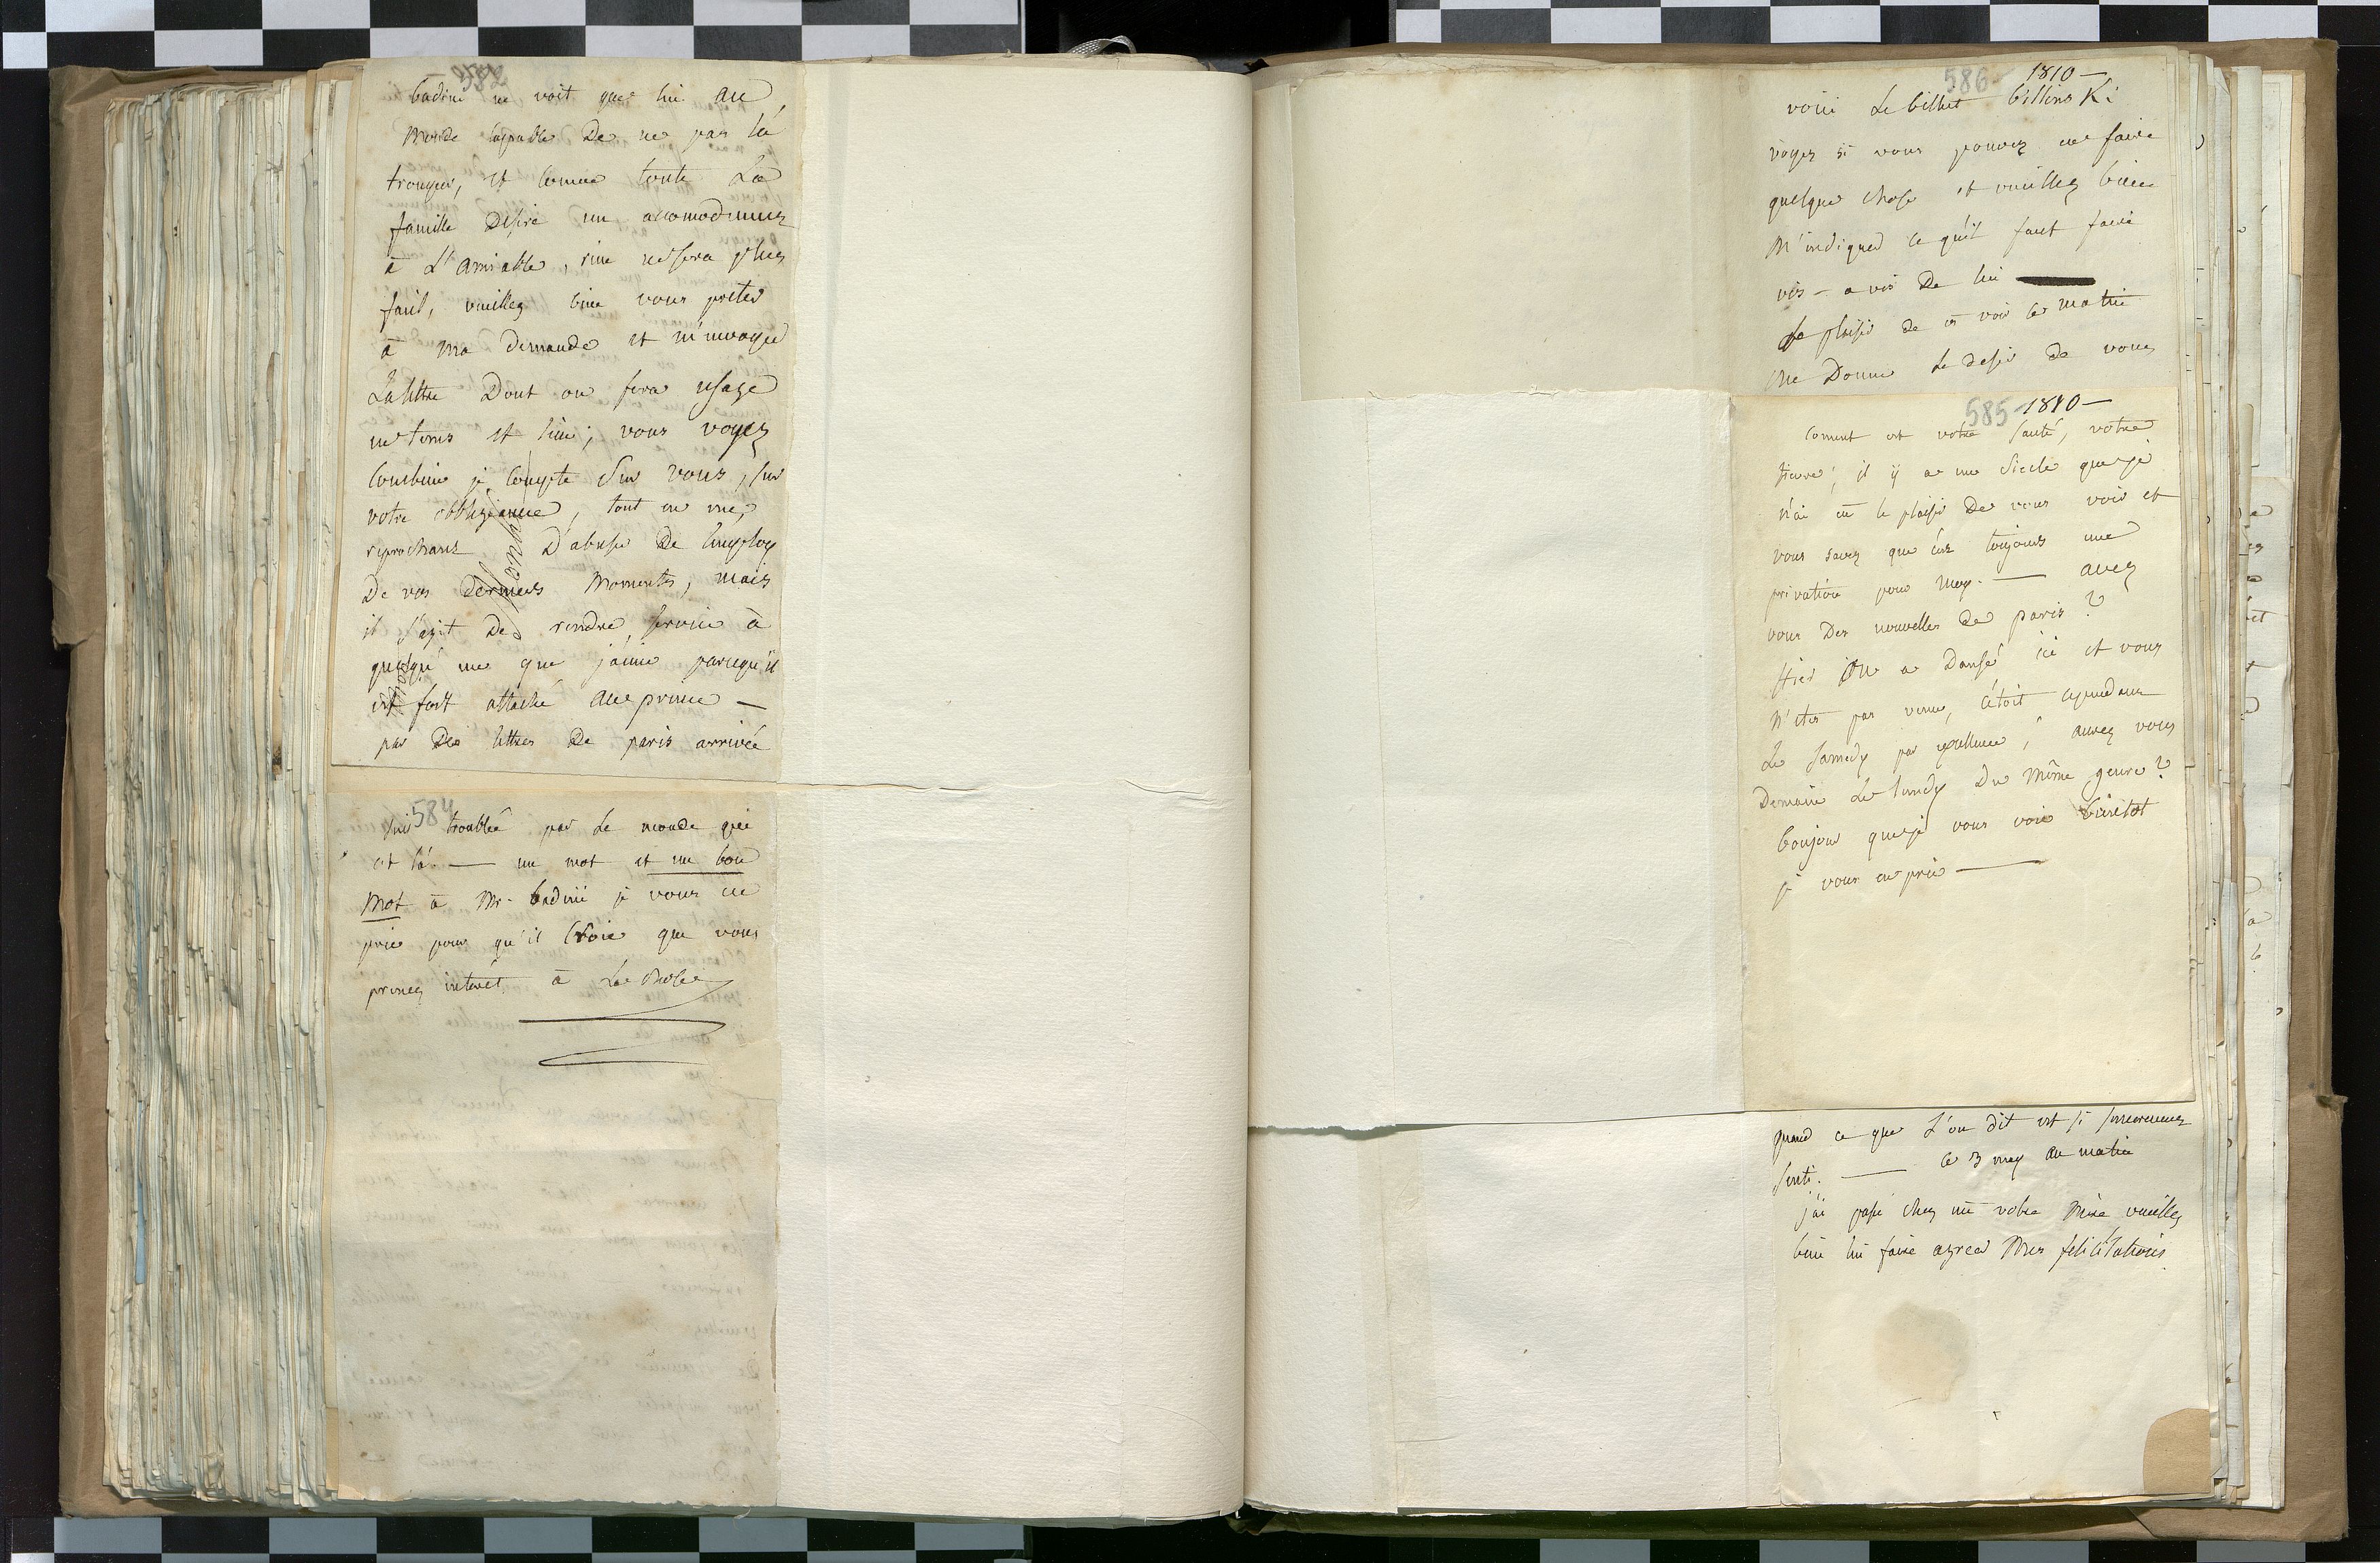 582
badini ne voit que lui au
monde capable de ne pas la
tromper, et comme toute La
famille desire un accomodement
à L'amiable, rien ne sera plus
fait, veuillez bien vous preter
à ma demande et m'envoyer
La lettre Dont on fera usage
en tems et lieu; vous voyez
combien je compte sur vous, sur
votre obbligeance, tout en me
reprochant D'abuser de l'employ
De vos derniers Moments, mais
il s'agit De rendre service à
quelqu'une que j'aime parcequ'il
est fort attaché au prince —
par Des lettres De paris arrivée
584
suis troublée par le monde qui
est là — un mot et un bon
mot à Mr. badini je vous en
prie pour qu'il croie que vous
prenez interet à La chose
586 1810 —
voici Le billet billinski
voyez si vous pouvez en faire
quelque chose et veuillez bien
M'indiquer ce qu'il faut faire
vis-avis De lui
Le plaisir de vs voir ce matin
me Donne Le desir de vous
585 1810 —
coment est votre santé, votre
fievre; il ÿ a un siecle que je
n'ai eû le plaisir De vous voir et
vous savez que c'est toujours une
privation pour moy. — avez
vous Des nouvelles de paris?
Hier on a Dansé ici et vous
n'etes pas venu, c'étoit cependant
Le Samedy par excellence, aurez vous
Demain Le lundy Du même genre?
bonjour que je vous voie bientot
je vous en prie —
quand ce que L'on dit est si sincerement
senti. — ce 3 may au matin
j'ai passé chez me votre Mère veuillez
bien lui faire agreer Mes felicitations.